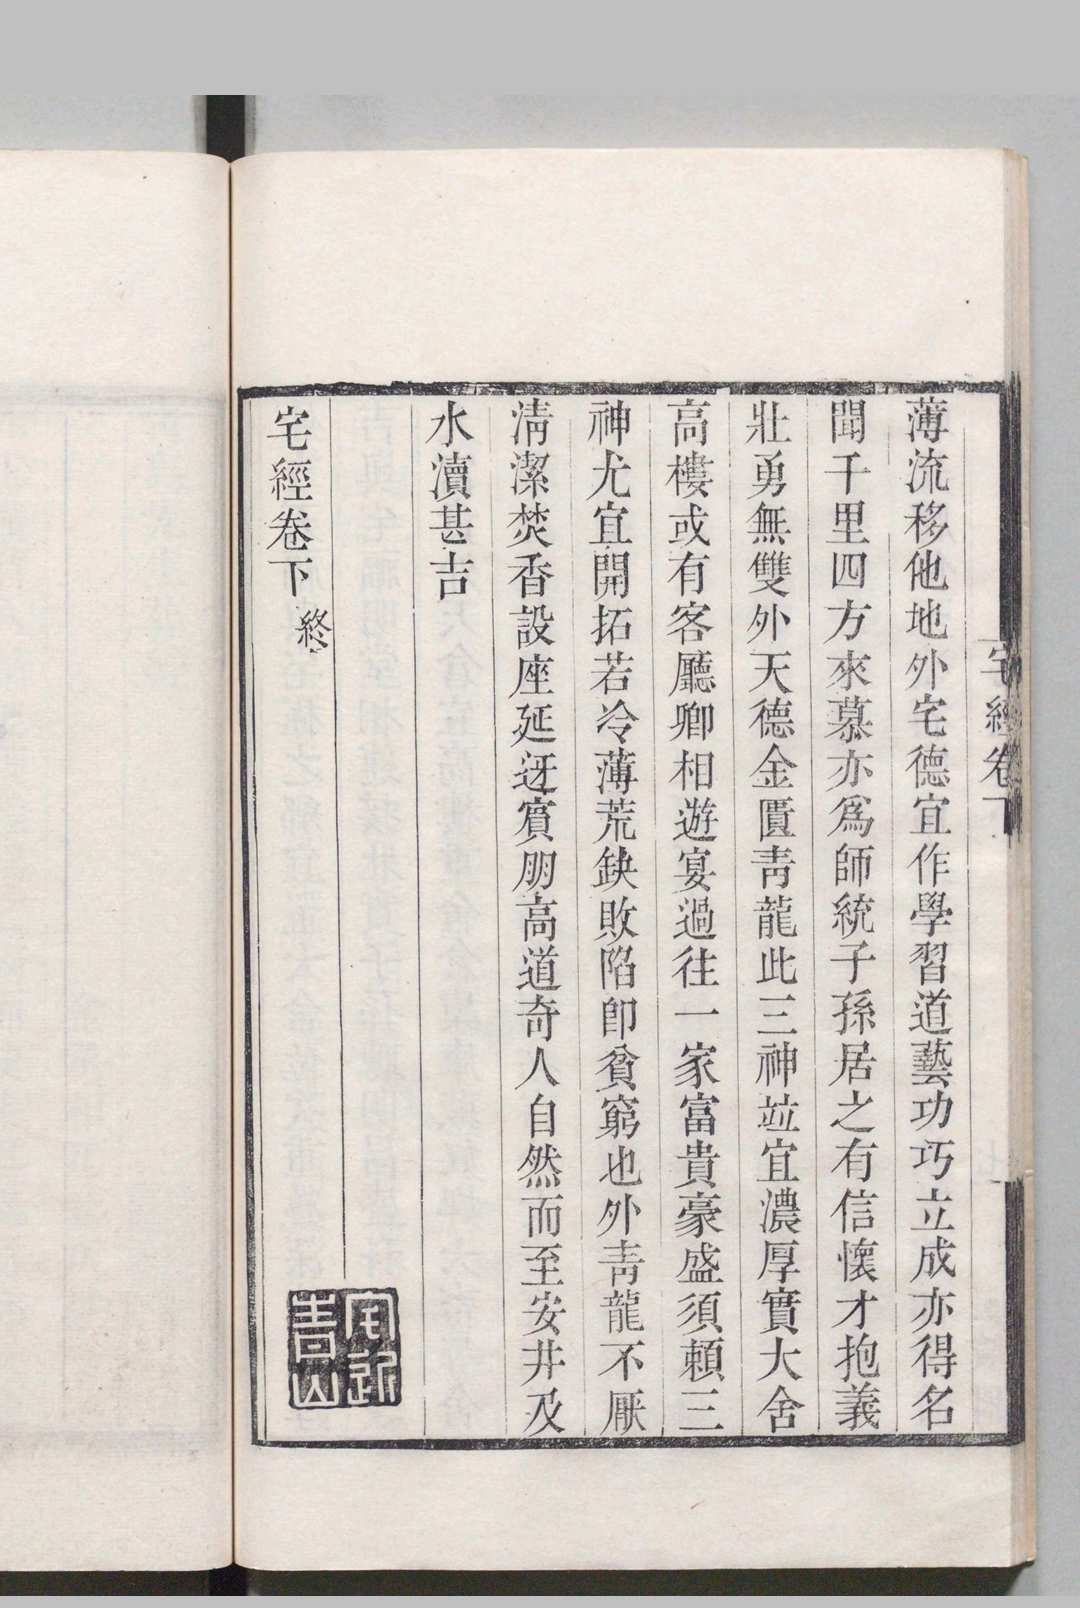 宅經卷下
薄流移他地外宅德宜作學習道藝功巧立成亦得名
聞千里四方來慕亦爲師統子孫居之有信懷才抱義
壯勇無雙外天德金匱靑龍此三神竝宜濃厚實大舍
高樓或有客廳卿相遊宴過往一家富貴豪盛須賴三
神尤宜開拓若冷薄荒鈌敗陷卽貧窮也外靑龍不厭
淸潔焚香設座延迓賓朋高道奇人自然而至安井及
水瀆甚吉
宅經卷下 終